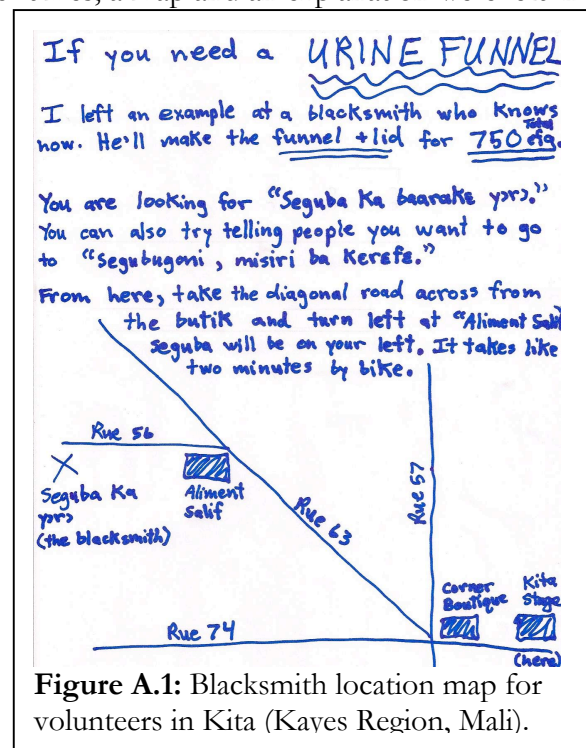 If you need a URINE FUNNEL
I left an example at a blacksmith who knows
now. He'll make the funnel + lid for 750 Total cfa.
You are looking for "Seguba Ka baarakɛ yɔrɔ."
You can also try telling people you want to go
to "Segubugoni, misiri ba kerefɛ."
From here, take the diagonal road across from
the butik and turn left at "Aliment Salif"
Seguba will be on your left. It takes like
two minutes by bike.
Rue 56
Seguba Ka
yɔrɔ
(the blacksmith)
Aliment
Salif
Rue 63
Rue 57
Corner
Boutique
Kita
Stage
(here)
Rue 74
Figure A.1: Blacksmith location map for
volunteers in Kita (Kayes Region, Mali).